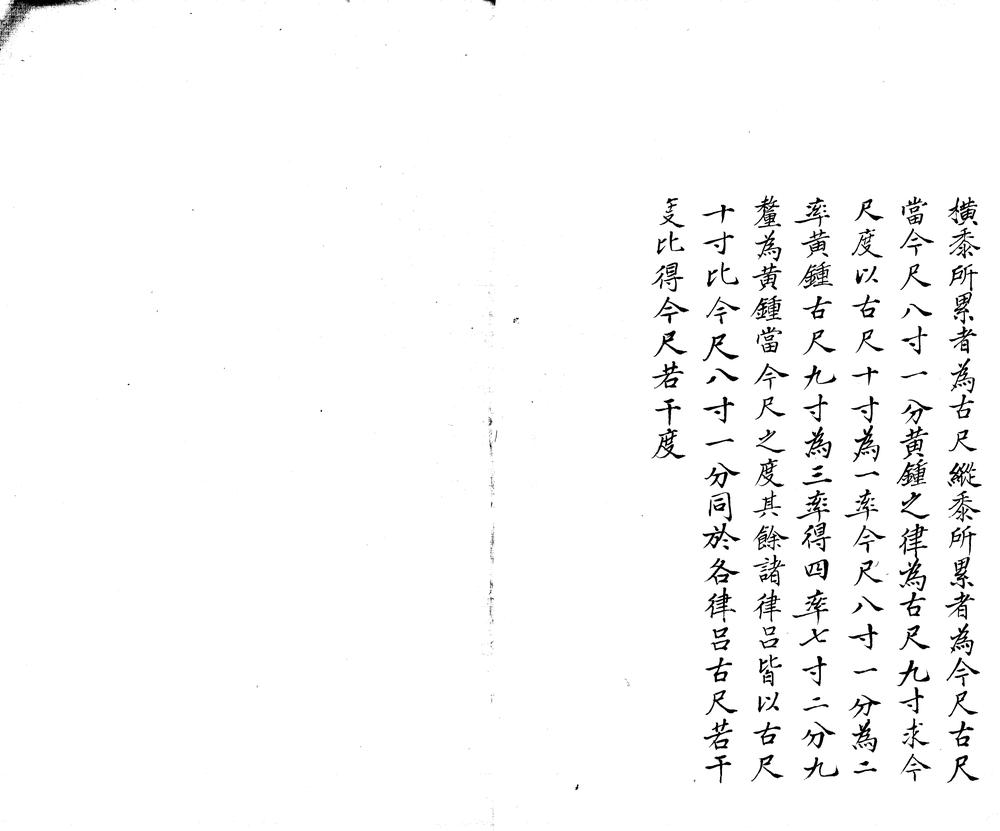 橫黍所累者為古尺縱黍所累者為今尺古尺
當今尺八寸一分黃鍾之律為古尺九寸求今
尺度以古尺十寸為一率今尺八寸一分為二
率黃鍾古尺九寸為三率得四率七寸二分九
釐為黃鍾當今尺之度其餘諸律呂皆以古尺
十寸比今尺八寸一分同於各律呂古尺若干
比得今尺若干度